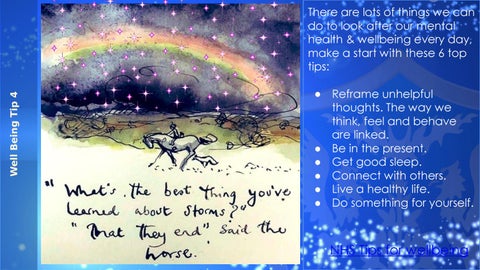 Well Being Tip 4
"What's the best thing you've
learned about storms?"
"That they end" said the
horse.
There are lots of things we can
do to look after our mental
health & wellbeing every day,
make a start with these 6 top
tips:
● Reframe unhelpful
thoughts. The way we
think, feel and behave
are linked.
● Be in the present.
● Get good sleep.
● Connect with others.
● Live a healthy life.
● Do something for yourself.
NHS Tips for wellbeing